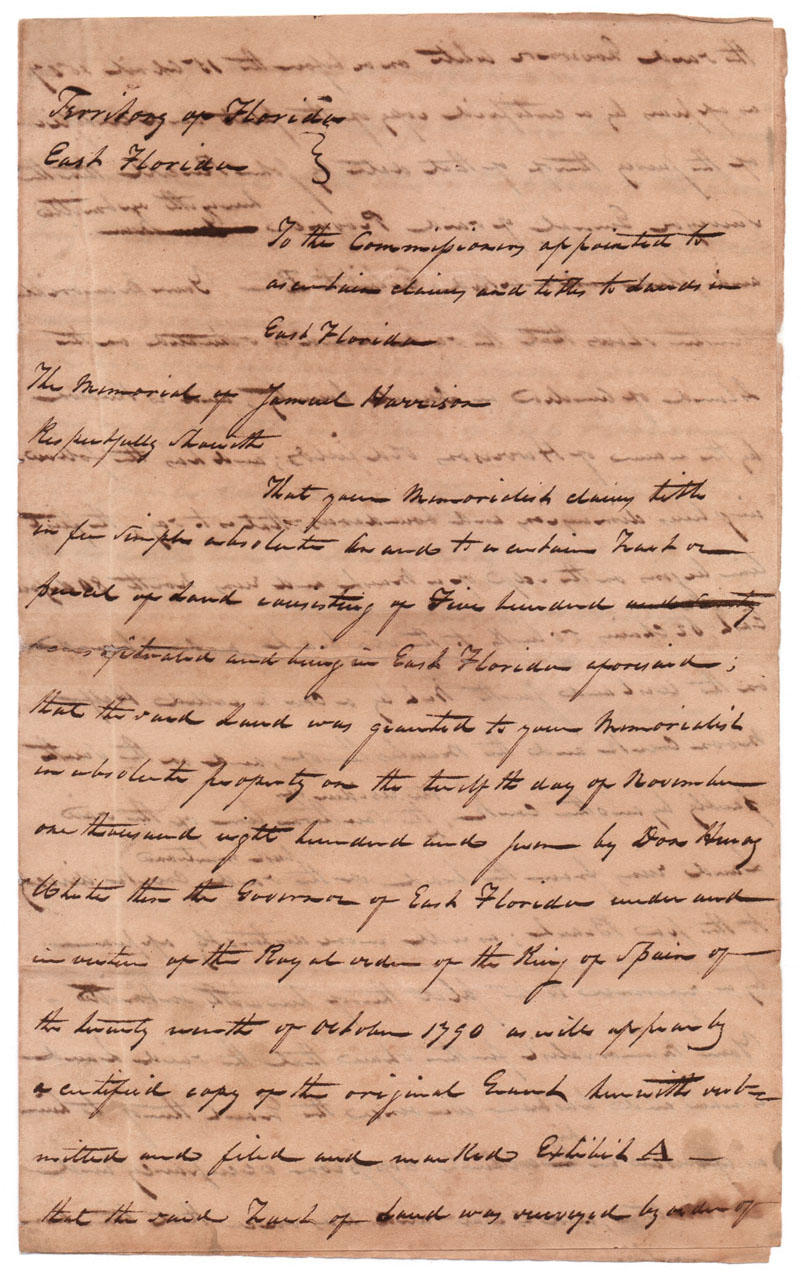 Territory of Florida
East Florida }
To the Commissioners appointed to
ascertain claims and titles to Lands in
East Florida
The Memorial of Samuel Harrison
Respectfully Sheweth
That your Memorialist claims title
in fee simple absolute in and to a certain Tract or
parcel of Land consisting of Five hundred and seventy
acres situated and being in East Florida aforesaid;
that the said Land was granted to your Memorialist
in absolute property on the twelfth day of November
one thousand eight hundred and four by Don Henry
White then the Governor of East Florida under and
in virtue of the Royal order of the King of Spain of
the twenty ninth of October 1790 as will appear by
a certified copy of the original Grant herewith sub-
mitted and filed and marked Exhibit A —
that the said Tract of Land was surveyed by order of